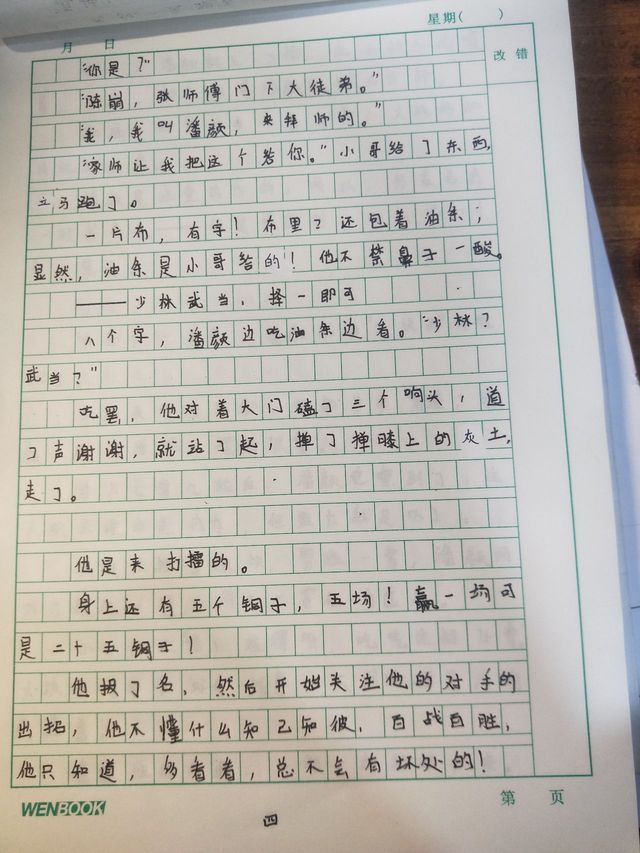 月 日
星期( )
改 错
"你是?"
"陈崩,张师傅门下大徒弟。"
"我,我叫潘颜,来拜师的。"
"家师让我把这个给你。"小哥给了东西,
立马跑了。
一片布,有字!布里?还包着油条;
显然,油条是小哥给的!他不禁鼻子一酸。
——少林武当,择一即可
八个字,潘颜边吃油条边看。"少林?
武当?"
吃罢,他对着大门磕了三个响头,道
了声谢谢,就站了起,掸了掸膝上的灰土,
走了。
他是来打擂的。
身上还有五个铜子,五场!赢一场可
是二十五铜子!
他报了名,然后开始关注他的对手的
出招,他不懂什么知己知彼,百战百胜,
他只知道,多看看,总不会有坏处的!
WENBOOK
四
第 页